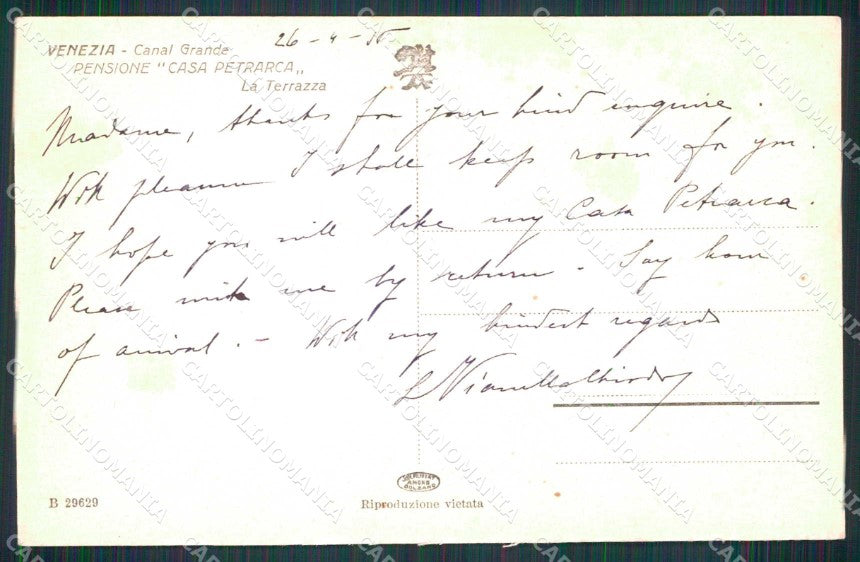 VENEZIA - Canal Grande
PENSIONE "CASA PETRARCA„
La Terrazza
26-4-35
Madame, thanks for your kind enquire.
With pleasure I shall keep room for you.
I hope you will like my Casa Petrarca.
Please write me by return. Say hour
of arrival. - With my kindest regards
B 29629
Riproduzione vietata
CARTOLINOMANIA